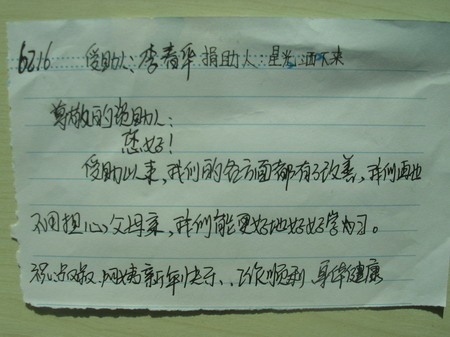 6216 受助人:李春华 捐助人:星光洒下来
尊敬的资助人:
您好!
受助以来,我们的各方面都有了改善,我们再也
不用担心父母亲,我们能更好地好好学习。
祝叔叔、阿姨新年快乐、工作顺利、身体健康